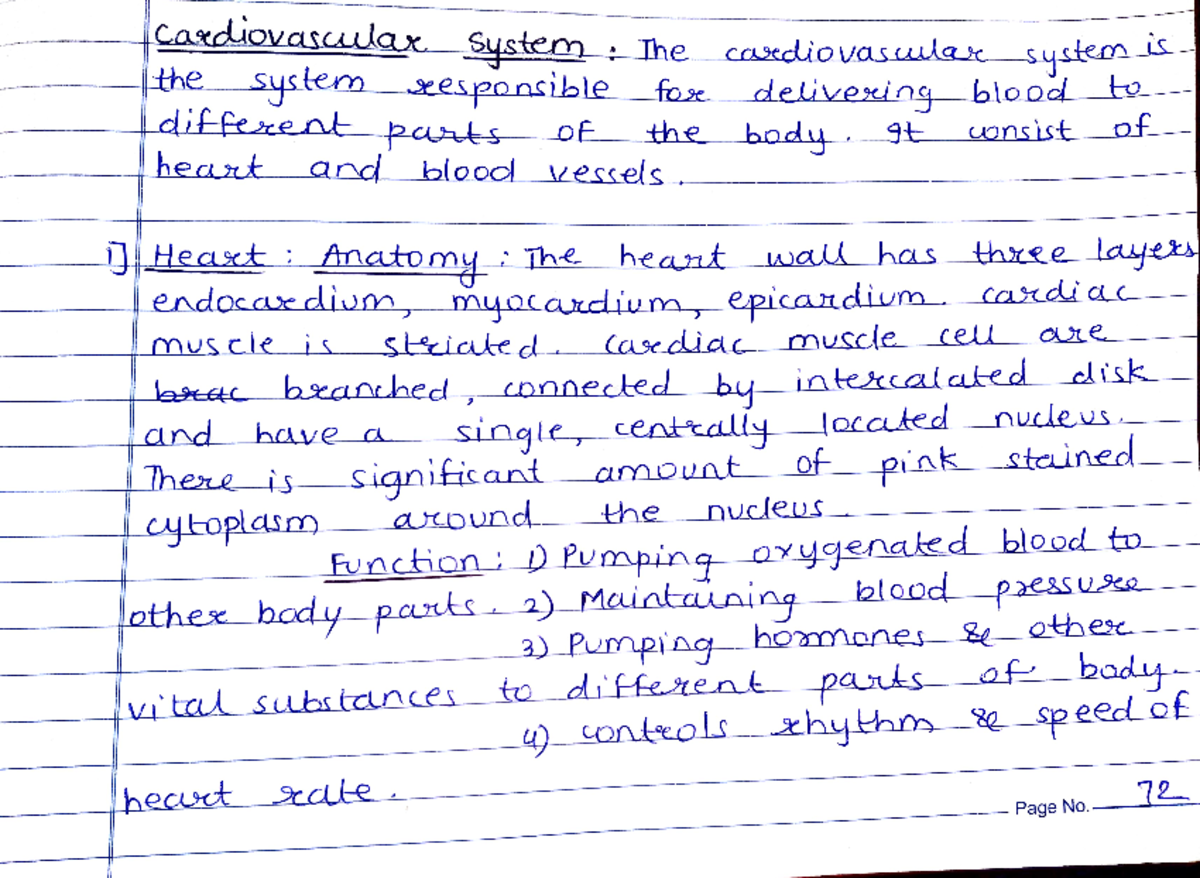 Cardiovascular System : The cardiovascular system is
the system responsible for delivering blood to
different parts of the body. It consist of
heart and blood vessels.
i] Heart : Anatomy : The heart wall has three layers
endocardium, myocardium, epicardium. cardiac
muscle is striated. Cardiac muscle cell are
brac branched, connected by intercalated disk
and have a single, centrally located nucleus.
There is significant amount of pink stained
cytoplasm around the nucleus.
Function : 1) Pumping oxygenated blood to
other body parts. 2) Maintaining blood pressure
3) Pumping hormones & other
vital substances to different parts of body.
4) controls rhythm & speed of
heart rate.
Page No. 72